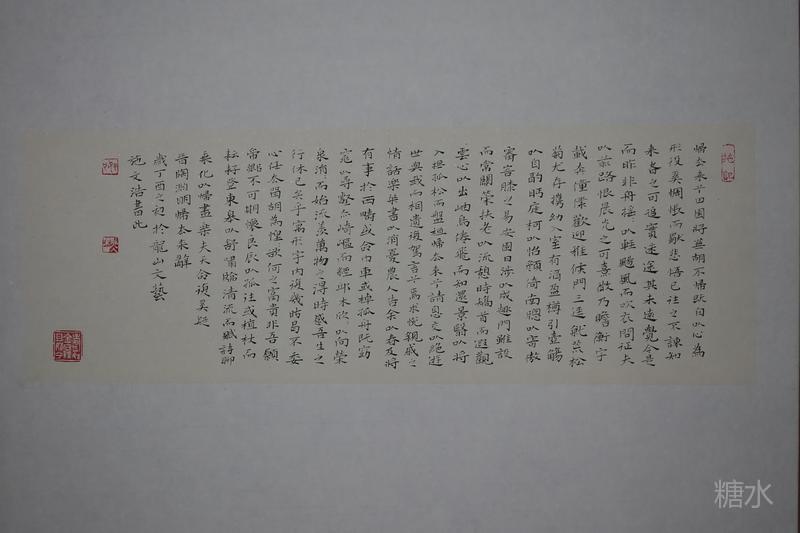 歸去來兮田園將蕪胡不歸既自以心為
形役奚惆悵而獨悲悟已往之不諫知
來者之可追實迷途其未遠覺今是
而昨非舟搖以輕颺風而吹衣問征夫
以前路恨晨光之可熹微乃瞻衡宇
載奔僮僕歡迎稚候門三逕就荒松
菊尤存攜幼入室有酒盈樽引壺觴
以自酌眄庭柯以怡顏倚南窗以寄傲
審容膝之易安園日涉以成趣門雖設
而常關策扶老以流憩時矯首而遐觀
雲心以出岫鳥倦飛而知還景翳以將
入撫孤松而盤桓歸去來兮請息交以絕遊
世與我而相遺復駕言兮焉求悅親戚之
情話樂琴書以消憂農人告余以春及將
有事於西疇或命巾車或棹孤舟既窈
窕以尋壑亦崎嶇而經邱木欣以向榮
泉涓而始流羨萬物之得時感吾生之
行休已矣乎寓形宇內復幾時曷不委
心任去留胡為惶欲何之富貴非吾願
帝鄉不可期懷良辰以孤往或植杖而
耘耔登東皋以舒嘯臨清流而賦詩聊
乘化以歸盡樂夫天命復奚疑
晉陶淵明歸去來辭
歲丁酉之初於龍山文藝
施文浩書此
糖水